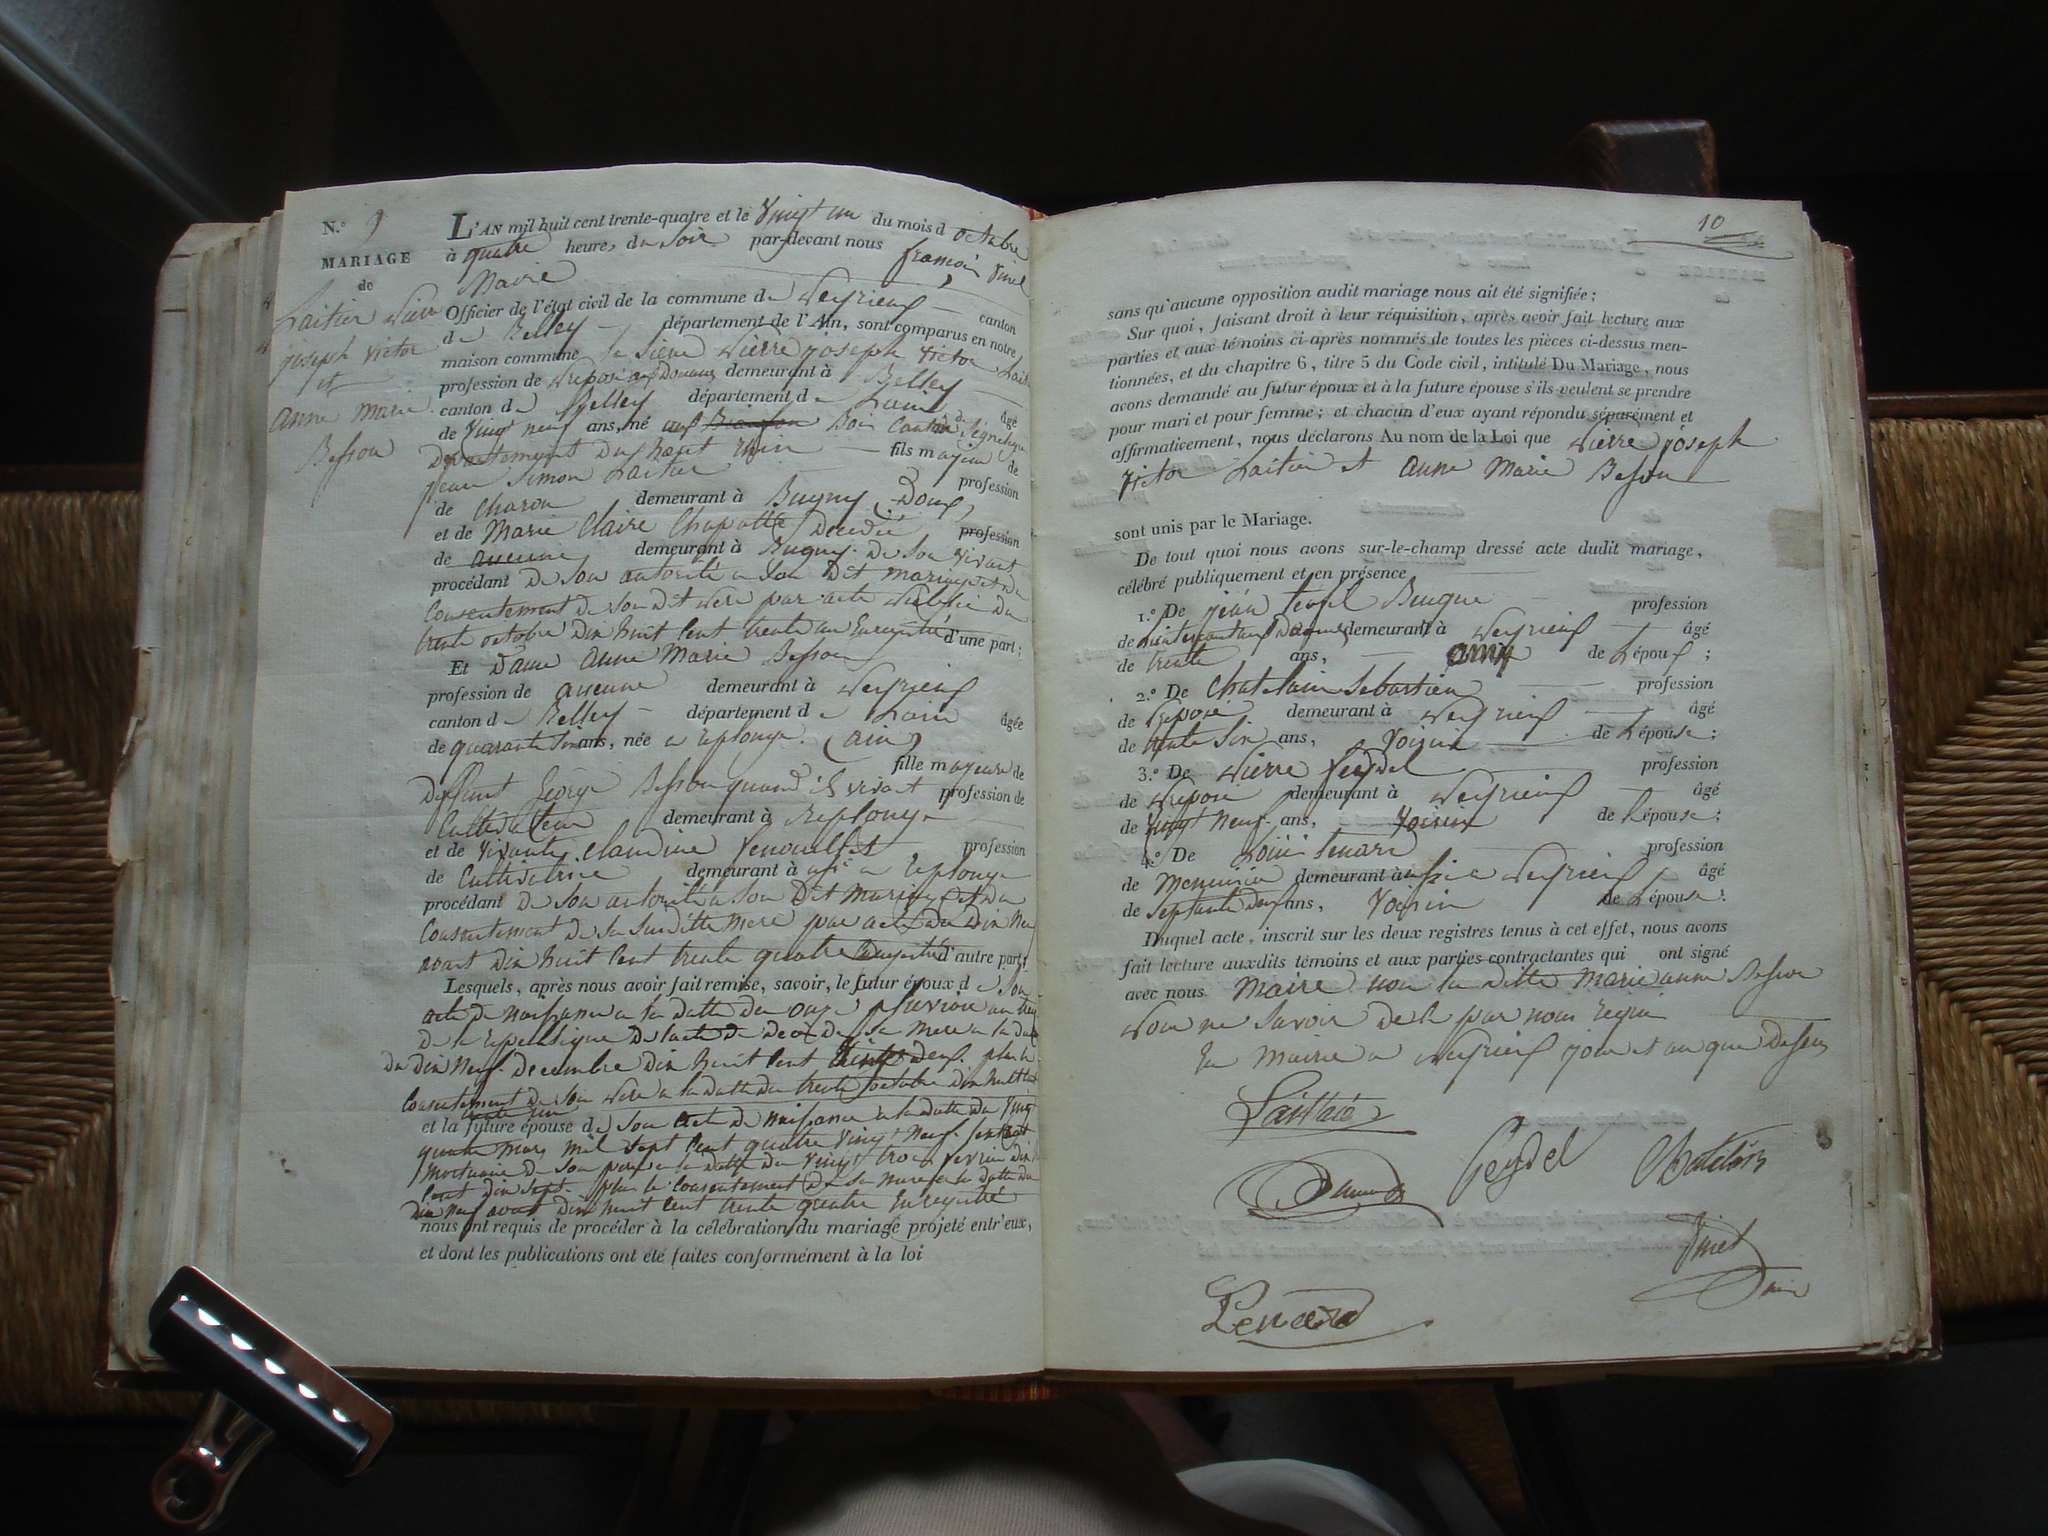 N.º 9
MARIAGE
de
Laitier Pierre
joseph victor
et
anne marie
Besson
L'AN mil huit cent trente-quatre et le vingt un du mois d octobre
à quatre heure, du soir par-devant nous françois vinet
Maire
Officier de l'état civil de la commune de Peyrieux canton
de Belley département de l'Ain, sont comparus en notre
maison commune le sieur pierre joseph victor
profession de préposé aux Douanes demeurant à Belley
canton de Belley département de Lain âgé
de vingt neuf ans, né Canton
Département du haut Rhin fils majeur de
jean simon Laitier profession
de charon demeurant à Bugny Doubs
et de Marie claire Chapatte Décédée profession
de aucune demeurant à Bugny de son vivant
procédant de son autorité a son dit mariage et du
Consentement de son dit pere par acte publié du
trente octobre dix huit cent trente un Enregistré d'une part;
Et Dame anne Marie Besson
profession de aucune demeurant à Peyrieux
canton de Belley département de Lain âgée
de quarante ans, née a replonge (ain)
fille majeure de
deffunt George Besson quand il vivait profession de
Cultivateur demeurant à Replonge
et de vivante claudine profession
de Cultivatrice demeurant à a replonge
procédant de son autorité a son dit mariage et du
Consentement de sa susditte mere par acte du dix neuf
aout dix huit cent trente quatre Enregistré d'autre part;
Lesquels, après nous avoir fait remise, savoir, le futur époux de son
acte de naissance a la datte du pluviose an
de la republique de lacte de deces de sa mere a la datte
du dix neuf decembre dix huit cent deux plus le
Consentement de son pere a la datte du trente octobre dix huit cent
trente un
et la future épouse de son acte de naissance a la datte du vingt
quatre mars mil sept cent quatre vingt neuf
mortuaire de son pere a la datte du vingt trois fevrier dix
cent dix sept plus le Consentement de sa mere a la datte du
dix neuf aout dix huit cent trente quatre Enregistré
nous ont requis de procéder à la célébration du mariage projeté entr'eux,
et dont les publications ont été faites conformément à la loi
10
sans qu'aucune opposition audit mariage nous ait été signifiée;
Sur quoi, faisant droit à leur réquisition, après avoir fait lecture aux
parties et aux témoins ci-après nommés de toutes les pièces ci-dessus men-
tionnées, et du chapitre 6, titre 5 du Code civil, intitulé Du Mariage, nous
avons demandé au futur époux et à la future épouse s'ils veulent se prendre
pour mari et pour femme; et chacun d'eux ayant répondu séparément et
affirmativement, nous déclarons Au nom de la Loi que Pierre joseph
victor Laitier et anne Marie Besson
sont unis par le Mariage.
De tout quoi nous avons sur-le-champ dressé acte dudit mariage,
célébré publiquement et en présence
1.º De jean profession
de demeurant à Peyrieux âgé
de trente ans, amy de Lépoux;
2.º De Chatelain Sebastien profession
de préposé demeurant à Peyrieux âgé
de trente six ans, voisin de Lépouse;
3.º De Pierre feydel profession
de préposé demeurant à Peyrieux âgé
de vingt neuf ans, voisin de Lépouse;
4.º De Louis Tenard profession
de Menuisier demeurant à Peyrieux âgé
de septante deux ans, voisin de Lépouse.
Duquel acte, inscrit sur les deux registres tenus à cet effet, nous avons
fait lecture auxdits témoins et aux parties contractantes qui ont signé
avec nous Maire non la ditte Marie anne Besson
pour ne savoir de ce par nous requis
En mairie a Peyrieux jour et an que dessus
feydel
Chatelain
Vinet
Maire